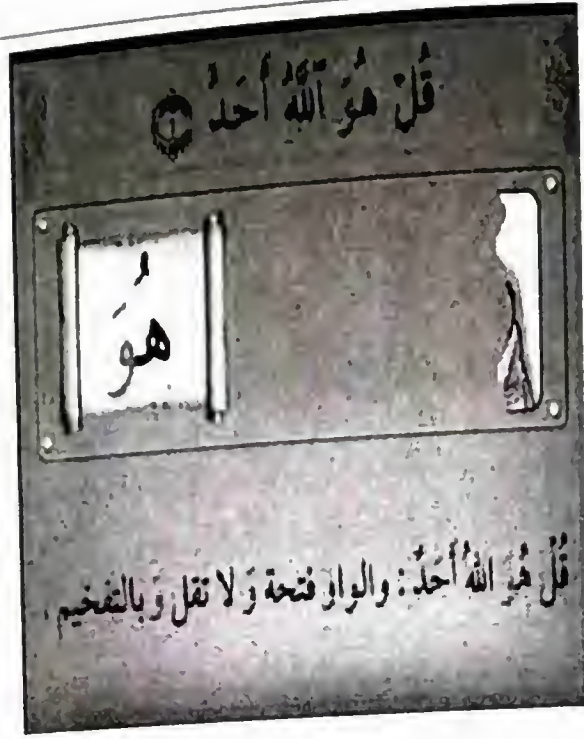 قُلْ هُوَ ٱللَّهُ أَحَدٌ ١
هُوَ
قُلْ هُوَ اللَّهُ أَحَدٌ : والواو فتحة وَ لا تقل وَ بالتفخيم .